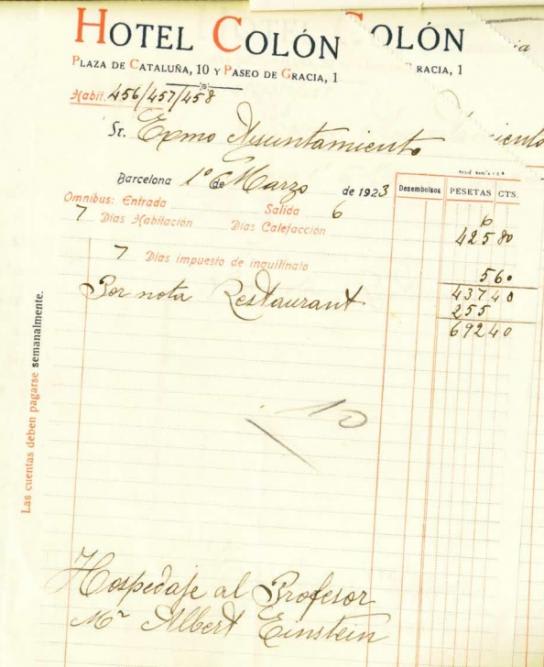 HOTEL COLÓN COLÓN
PLAZA DE CATALUÑA, 10 Y PASEO DE GRACIA, 1 GRACIA, 1
Habit. 456/457/458
Sr. Exmo Ayuntamiento
Barcelona 1º de Marzo de 1923
Desembolsos PESETAS CTS.
Omnibus: Entrada Salida 6 6
7 Dias Habitación Dias Calefacción 425 80
7 Dias impuesto de inquilinato 5 60
Por nota Restaurant 437 40
255
692 40
10
Las cuentas deben pagarse semanalmente.
Hospedaje al Profesor
Mr Albert Einstein